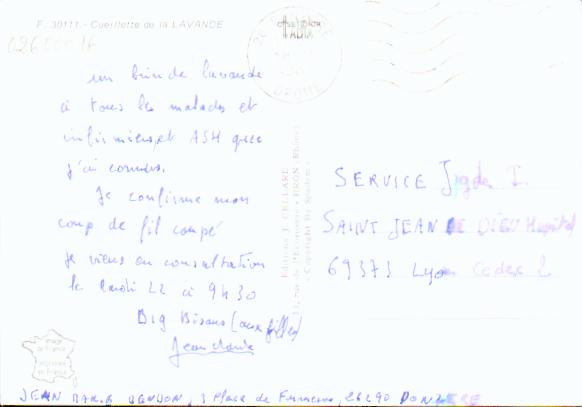 F. 30111.- Cueillette de la LAVANDE
026000 16
un brin de lavande
à tous les malades et
infirmiers, et ASH que
j'ai connus.
Je confirme mon
coup de fil coupé
je viens en consultation
le lundi 22 à 9h30
Big Bisous (aux filles)
Jean claude
DROME
Editions J. CELLARD
, rue de l'Economie - BRON (Rhône)
- Copyright By
SERVICE I
SAINT JEAN DE DIEU Hopital
69373 Lyon Cedex 2
image de France
imprimée en France
JEAN 3 Place de 26290 DONZERE